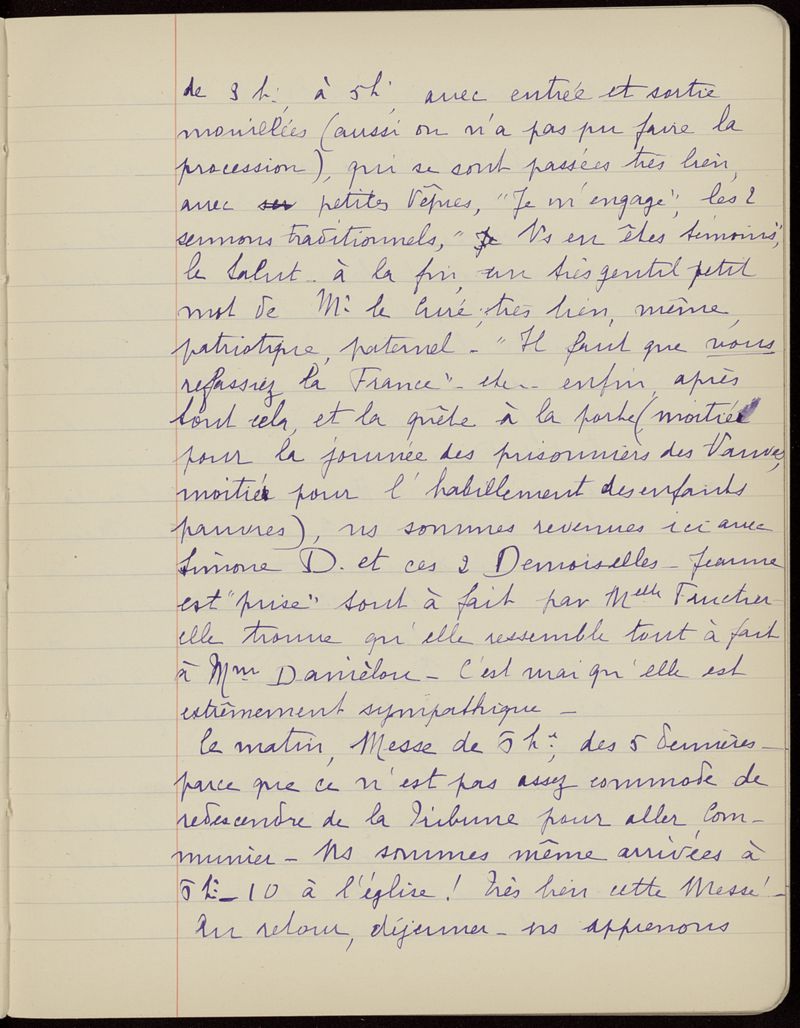 de 3 h. à 5 h. avec entrée et sortie
mouillées (aussi on n'a pas pu faire la
procession), qui se sont passées très bien,
avec petites Vêpres, "Je m'engage", les 2
sermons traditionnels, " Vs en êtes témoins",
le Salut - à la fin, un très gentil petit
mot de Mr le Curé, très bien, même
patriotique, paternel - "Il faut que vous
refassiez la France" - etc.. enfin, après
tout cela, et la quête à la porte (moitié
pour la journée des prisonniers des Vanves,
moitié pour l'habillement des enfants
pauvres), ns sommes revenues ici avec
Simone D. et ces 2 Demoiselles - Jeanne
est "prise" tout à fait par Melle
elle trouve qu'elle ressemble tout à fait
à Mme Daniélou - C'est vrai qu'elle est
extrêmement sympathique -
Le matin, Messe de 6 h., des 5 dernières -
parce que ce n'est pas assez commode de
redescendre de la Tribune pour aller Com-
munier - Ns sommes même arrivées à
6 h. - 10 à l'église ! Très bien cette Messe ! -
Au retour, déjeuner - ns apprenons